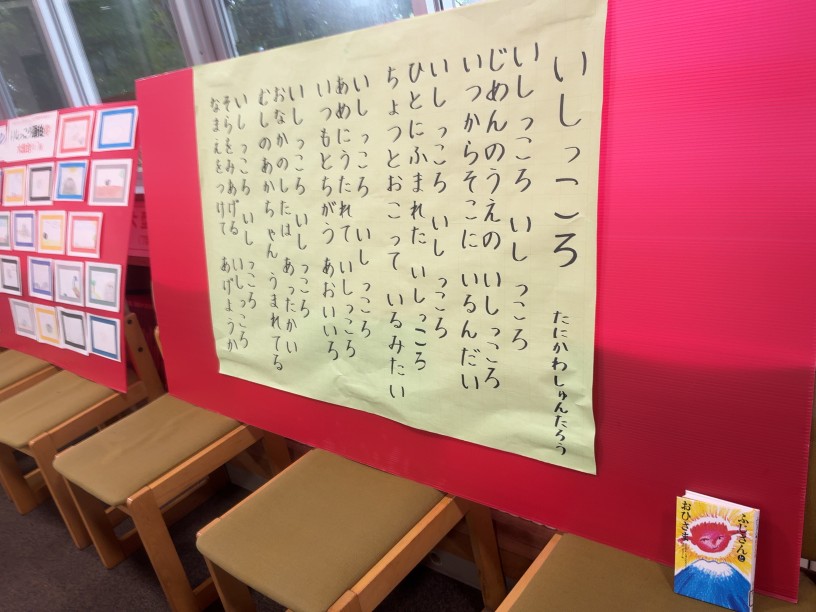 いしっころ
たにかわしゅんたろう
いしっころ いしっころ
じめんのうえの いしっころ
いつからそこに いるんだい
いしっころ いしっころ
ひとにふまれた いしっころ
ちょっとおこって いるみたい
いしっころ いしっころ
あめにうたれて いしっころ
いつもとちがう あおいいろ
いしっころ いしっころ
おなかのしたは あったかい
むしのあかちゃん うまれてる
いしっころ いしっころ
そらをみあげる いしっころ
なまえをつけて あげようか
ふじさんと
おひさま